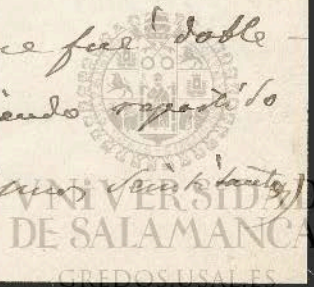 ce fué doble -
iendo repartido
unos
VNiVERSiDAD
DE SALAMANCA
GREDOS.USAL.ES